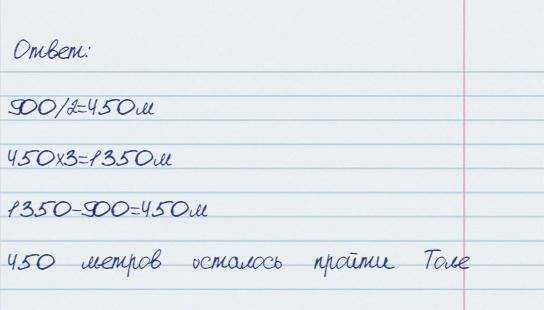 Ответ:
900/2=450м
450х3=1350м
1350-900=450м
450 метров осталось пройти Толе